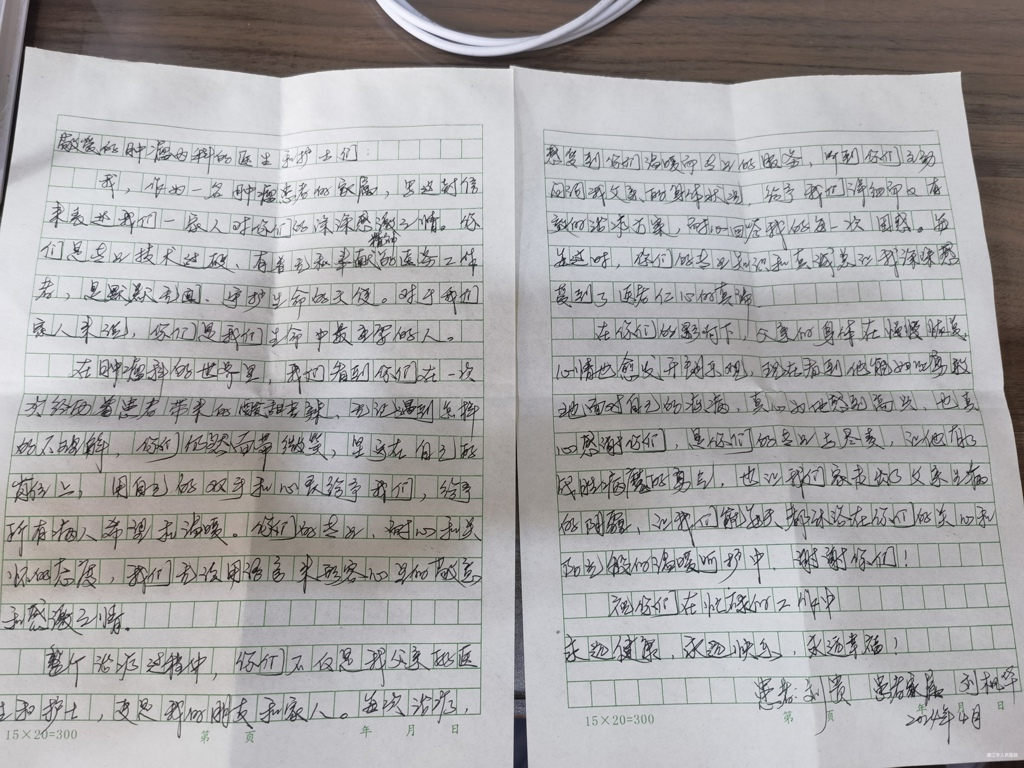 敬爱的肿瘤内科的医生和护士们：
我，作为一名肿瘤患者的家属，写这封信
来表达我们一家人对你们的深深感激之情。你
们是专业技术过硬、有着无私奉献精神的医务工作
者，是默默无闻、守护生命的天使。对于我们
家人来说，你们是我们生命中最重要的人。
在肿瘤科的世界里，我们看到你们在一次
次给两着患者带来的酸甜苦辣，无论遇到怎样
的不理解，你们仍然面带微笑，坚守在自己的
岗位上，用自己的双手和心灵给予我们，给予
所有病人希望和温暖。你们的专业、耐心和关
怀的态度，我们无法用语言来形容心里的敬意
和感激之情。
整个治疗过程中，你们不仅是我父亲的医
生和护士，更是我们的朋友和家人。每次治疗，
15×20=300 第 页 年 月 日
感受到你们温暖而专业的服务，听到你们主动
询问我父亲的身体状况，给予我们详细而又有
效的治疗方案，耐心回答我的每一次困惑。每
当这时，你们的专业知识和真诚总让我深深感
受到了医者仁心的真谛
在你们的影响下，父亲的身体在慢慢恢复，
心情也愈发开朗乐观，现在看到他能够勇敢
地面对自己的疾病，真心为他感到高兴，也真
心感谢你们，是你们的专业与尽责，让他有了
战胜病魔的勇气，也让我们家走出了父亲生病
的阴霾，让我们能每天都沐浴在你们的关心和
阳光般的温暖呵护中，谢谢你们！
祝你们在忙碌的工作中
永远健康，永远快乐，永远幸福！
患者：刘贵 患者家属 刘
2024年4月
15×20=300 第 页 年 月 日